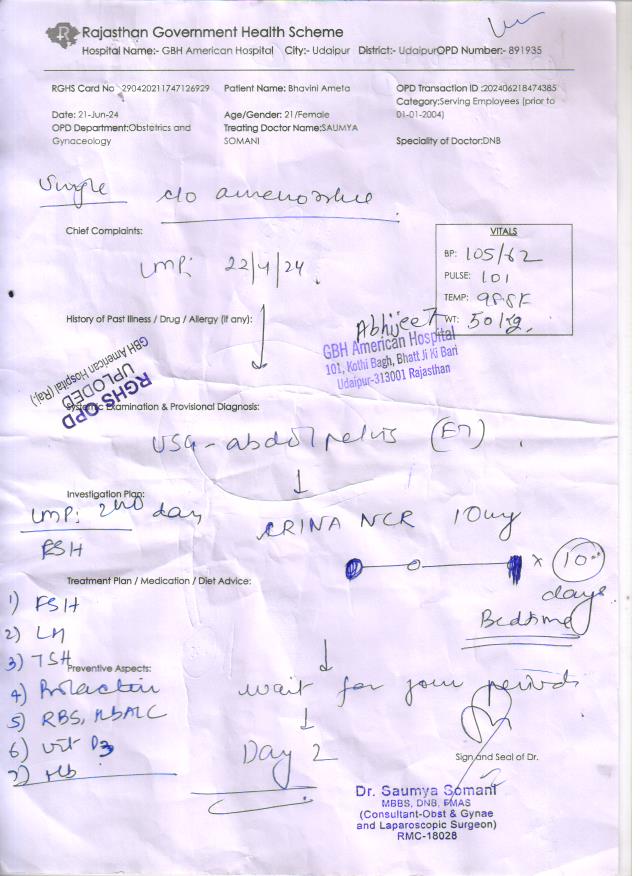 Rajasthan Government Health Scheme
Hospital Name:- GBH American Hospital City:- Udaipur District:- UdaipurOPD Number:- 891935
RGHS Card No 290420211747126929 Patient Name: Bhavini Ameta OPD Transaction ID :202406218474385
Category:Serving Employees (prior to 01-01-2004)
Date: 21-Jun-24 Age/Gender: 21/Female
OPD Department:Obstetrics and Gynaceology Treating Doctor Name:SAUMYA SOMANI Speciality of Doctor:DNB
Single c/o amenorrhea
Chief Complaints:
LMP: 22/4/24
VITALS
BP: 105/62
PULSE: 101
TEMP: 98.8F
WT: 50kg
History of Past Illness / Drug / Allergy (if any):
Abhijeet
GBH American Hospital
101, Kothi Bagh, Bhatt Ji Ki Bari
Udaipur-313001 Rajasthan
RGHS OPD
UPLODED
GBH American Hospital (Raj.)
Systemic Examination & Provisional Diagnosis:
USG - abdo/pelvis (ET)
Investigation Plan:
LMP: 2nd day
FSH
CRINA NCR 10mg
x 10
days
Bedtime
Treatment Plan / Medication / Diet Advice:
1) FSH
2) LH
3) TSH
Preventive Aspects:
4) Prolactin
5) RBS, HbA1C
6) Vit D3
7) Hb
wait for your periods
Day 2
Sign and Seal of Dr.
Dr. Saumya Somani
MBBS, DNB, FMAS
(Consultant-Obst & Gynae
and Laparoscopic Surgeon)
RMC-18028